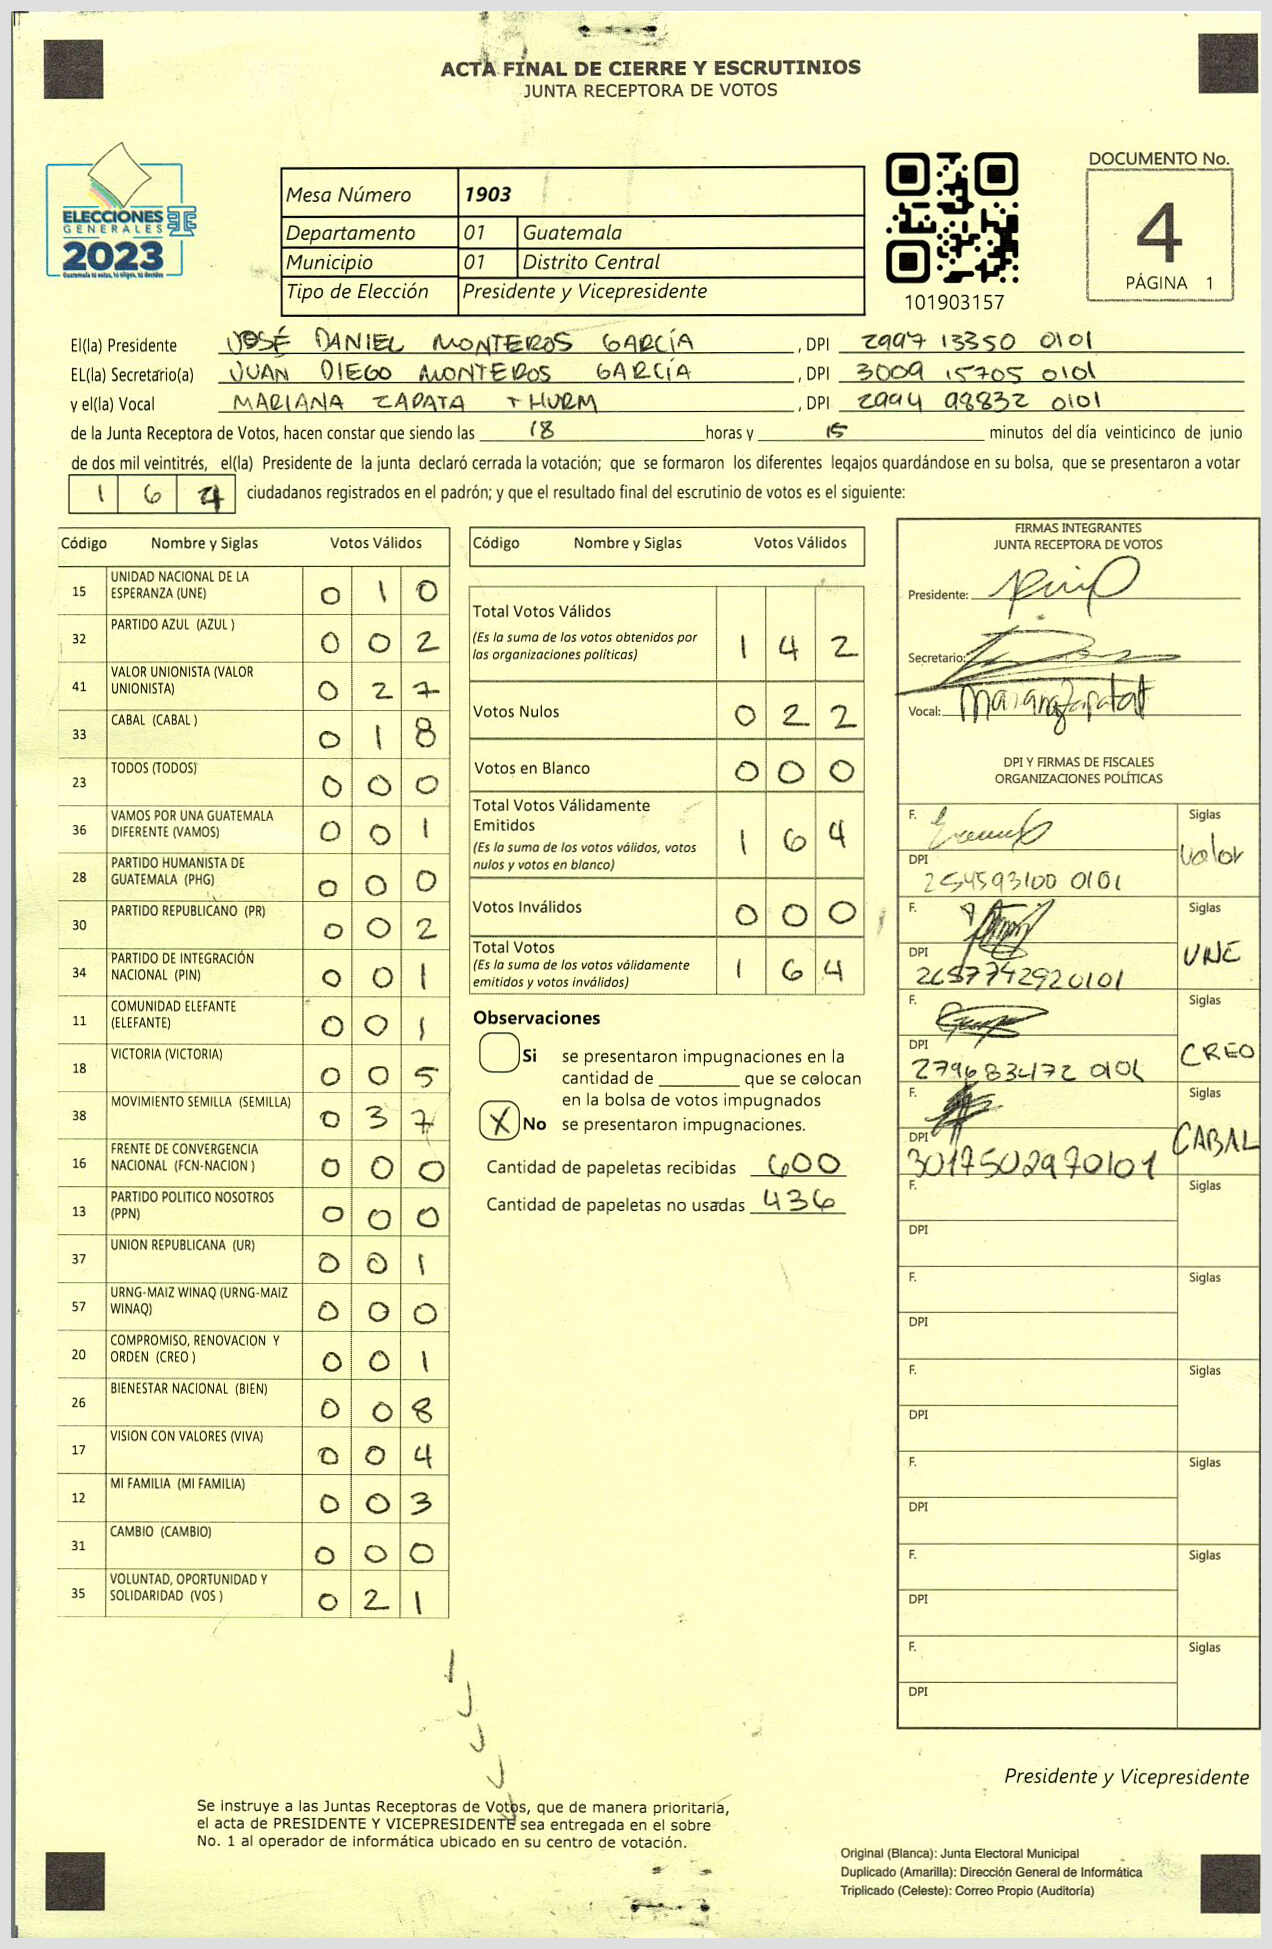 ACTA FINAL DE CIERRE Y ESCRUTINIOS
JUNTA RECEPTORA DE VOTOS
ELECCIONES
GENERALES
2023
Mesa Número 1903
Departamento 01 Guatemala
Municipio 01 Distrito Central
Tipo de Elección Presidente y Vicepresidente
101903157
DOCUMENTO No.
4
PÁGINA 1
El(la) Presidente JOSÉ DANIEL MONTEROS GARCÍA , DPI 2997 13350 0101
EL(la) Secretario(a) JUAN DIEGO MONTEROS GARCÍA , DPI 3009 15705 0101
y el(la) Vocal MARIANA ZAPATA THURM , DPI 2994 98832 0101
de la Junta Receptora de Votos, hacen constar que siendo las 18 horas y 15 minutos del día veinticinco de junio
de dos mil veintitrés, el(la) Presidente de la junta declaró cerrada la votación; que se formaron los diferentes legajos guardándose en su bolsa, que se presentaron a votar
1 6 4 ciudadanos registrados en el padrón; y que el resultado final del escrutinio de votos es el siguiente:
Código Nombre y Siglas Votos Válidos
15 UNIDAD NACIONAL DE LA ESPERANZA (UNE) 0 1 0
32 PARTIDO AZUL (AZUL ) 0 0 2
41 VALOR UNIONISTA (VALOR UNIONISTA) 0 2 7
33 CABAL (CABAL ) 0 1 8
23 TODOS (TODOS) 0 0 0
36 VAMOS POR UNA GUATEMALA DIFERENTE (VAMOS) 0 0 1
28 PARTIDO HUMANISTA DE GUATEMALA (PHG) 0 0 0
30 PARTIDO REPUBLICANO (PR) 0 0 2
34 PARTIDO DE INTEGRACIÓN NACIONAL (PIN) 0 0 1
11 COMUNIDAD ELEFANTE (ELEFANTE) 0 0 1
18 VICTORIA (VICTORIA) 0 0 5
38 MOVIMIENTO SEMILLA (SEMILLA) 0 3 7
16 FRENTE DE CONVERGENCIA NACIONAL (FCN-NACION ) 0 0 0
13 PARTIDO POLITICO NOSOTROS (PPN) 0 0 0
37 UNION REPUBLICANA (UR) 0 0 1
57 URNG-MAIZ WINAQ (URNG-MAIZ WINAQ) 0 0 0
20 COMPROMISO, RENOVACION Y ORDEN (CREO ) 0 0 1
26 BIENESTAR NACIONAL (BIEN) 0 0 8
17 VISION CON VALORES (VIVA) 0 0 4
12 MI FAMILIA (MI FAMILIA) 0 0 3
31 CAMBIO (CAMBIO) 0 0 0
35 VOLUNTAD, OPORTUNIDAD Y SOLIDARIDAD (VOS ) 0 2 1
Código Nombre y Siglas Votos Válidos
Total Votos Válidos
(Es la suma de los votos obtenidos por
las organizaciones políticas) 1 4 2
Votos Nulos 0 2 2
Votos en Blanco 0 0 0
Total Votos Válidamente
Emitidos
(Es la suma de los votos válidos, votos
nulos y votos en blanco) 1 6 4
Votos Inválidos 0 0 0
Total Votos
(Es la suma de los votos válidamente
emitidos y votos inválidos) 1 6 4
Observaciones
Si se presentaron impugnaciones en la
cantidad de ________ que se colocan
en la bolsa de votos impugnados
X No se presentaron impugnaciones.
Cantidad de papeletas recibidas 600
Cantidad de papeletas no usadas 436
FIRMAS INTEGRANTES
JUNTA RECEPTORA DE VOTOS
Presidente:
Secretario:
Vocal: Mariana Zapata t
DPI Y FIRMAS DE FISCALES
ORGANIZACIONES POLÍTICAS
F. Siglas
Valor
DPI
254593100 0101
F. Siglas
UNE
DPI
2657742920101
F. Siglas
CREO
DPI
279683472 0101
F. Siglas
CABAL
DPI
3017502970101
F. Siglas
DPI
F. Siglas
DPI
F. Siglas
DPI
F. Siglas
DPI
F. Siglas
DPI
F. Siglas
DPI
Presidente y Vicepresidente
Se instruye a las Juntas Receptoras de Votos, que de manera prioritaria,
el acta de PRESIDENTE Y VICEPRESIDENTE sea entregada en el sobre
No. 1 al operador de informática ubicado en su centro de votación.
Original (Blanca): Junta Electoral Municipal
Duplicado (Amarilla): Dirección General de Informática
Triplicado (Celeste): Correo Propio (Auditoría)